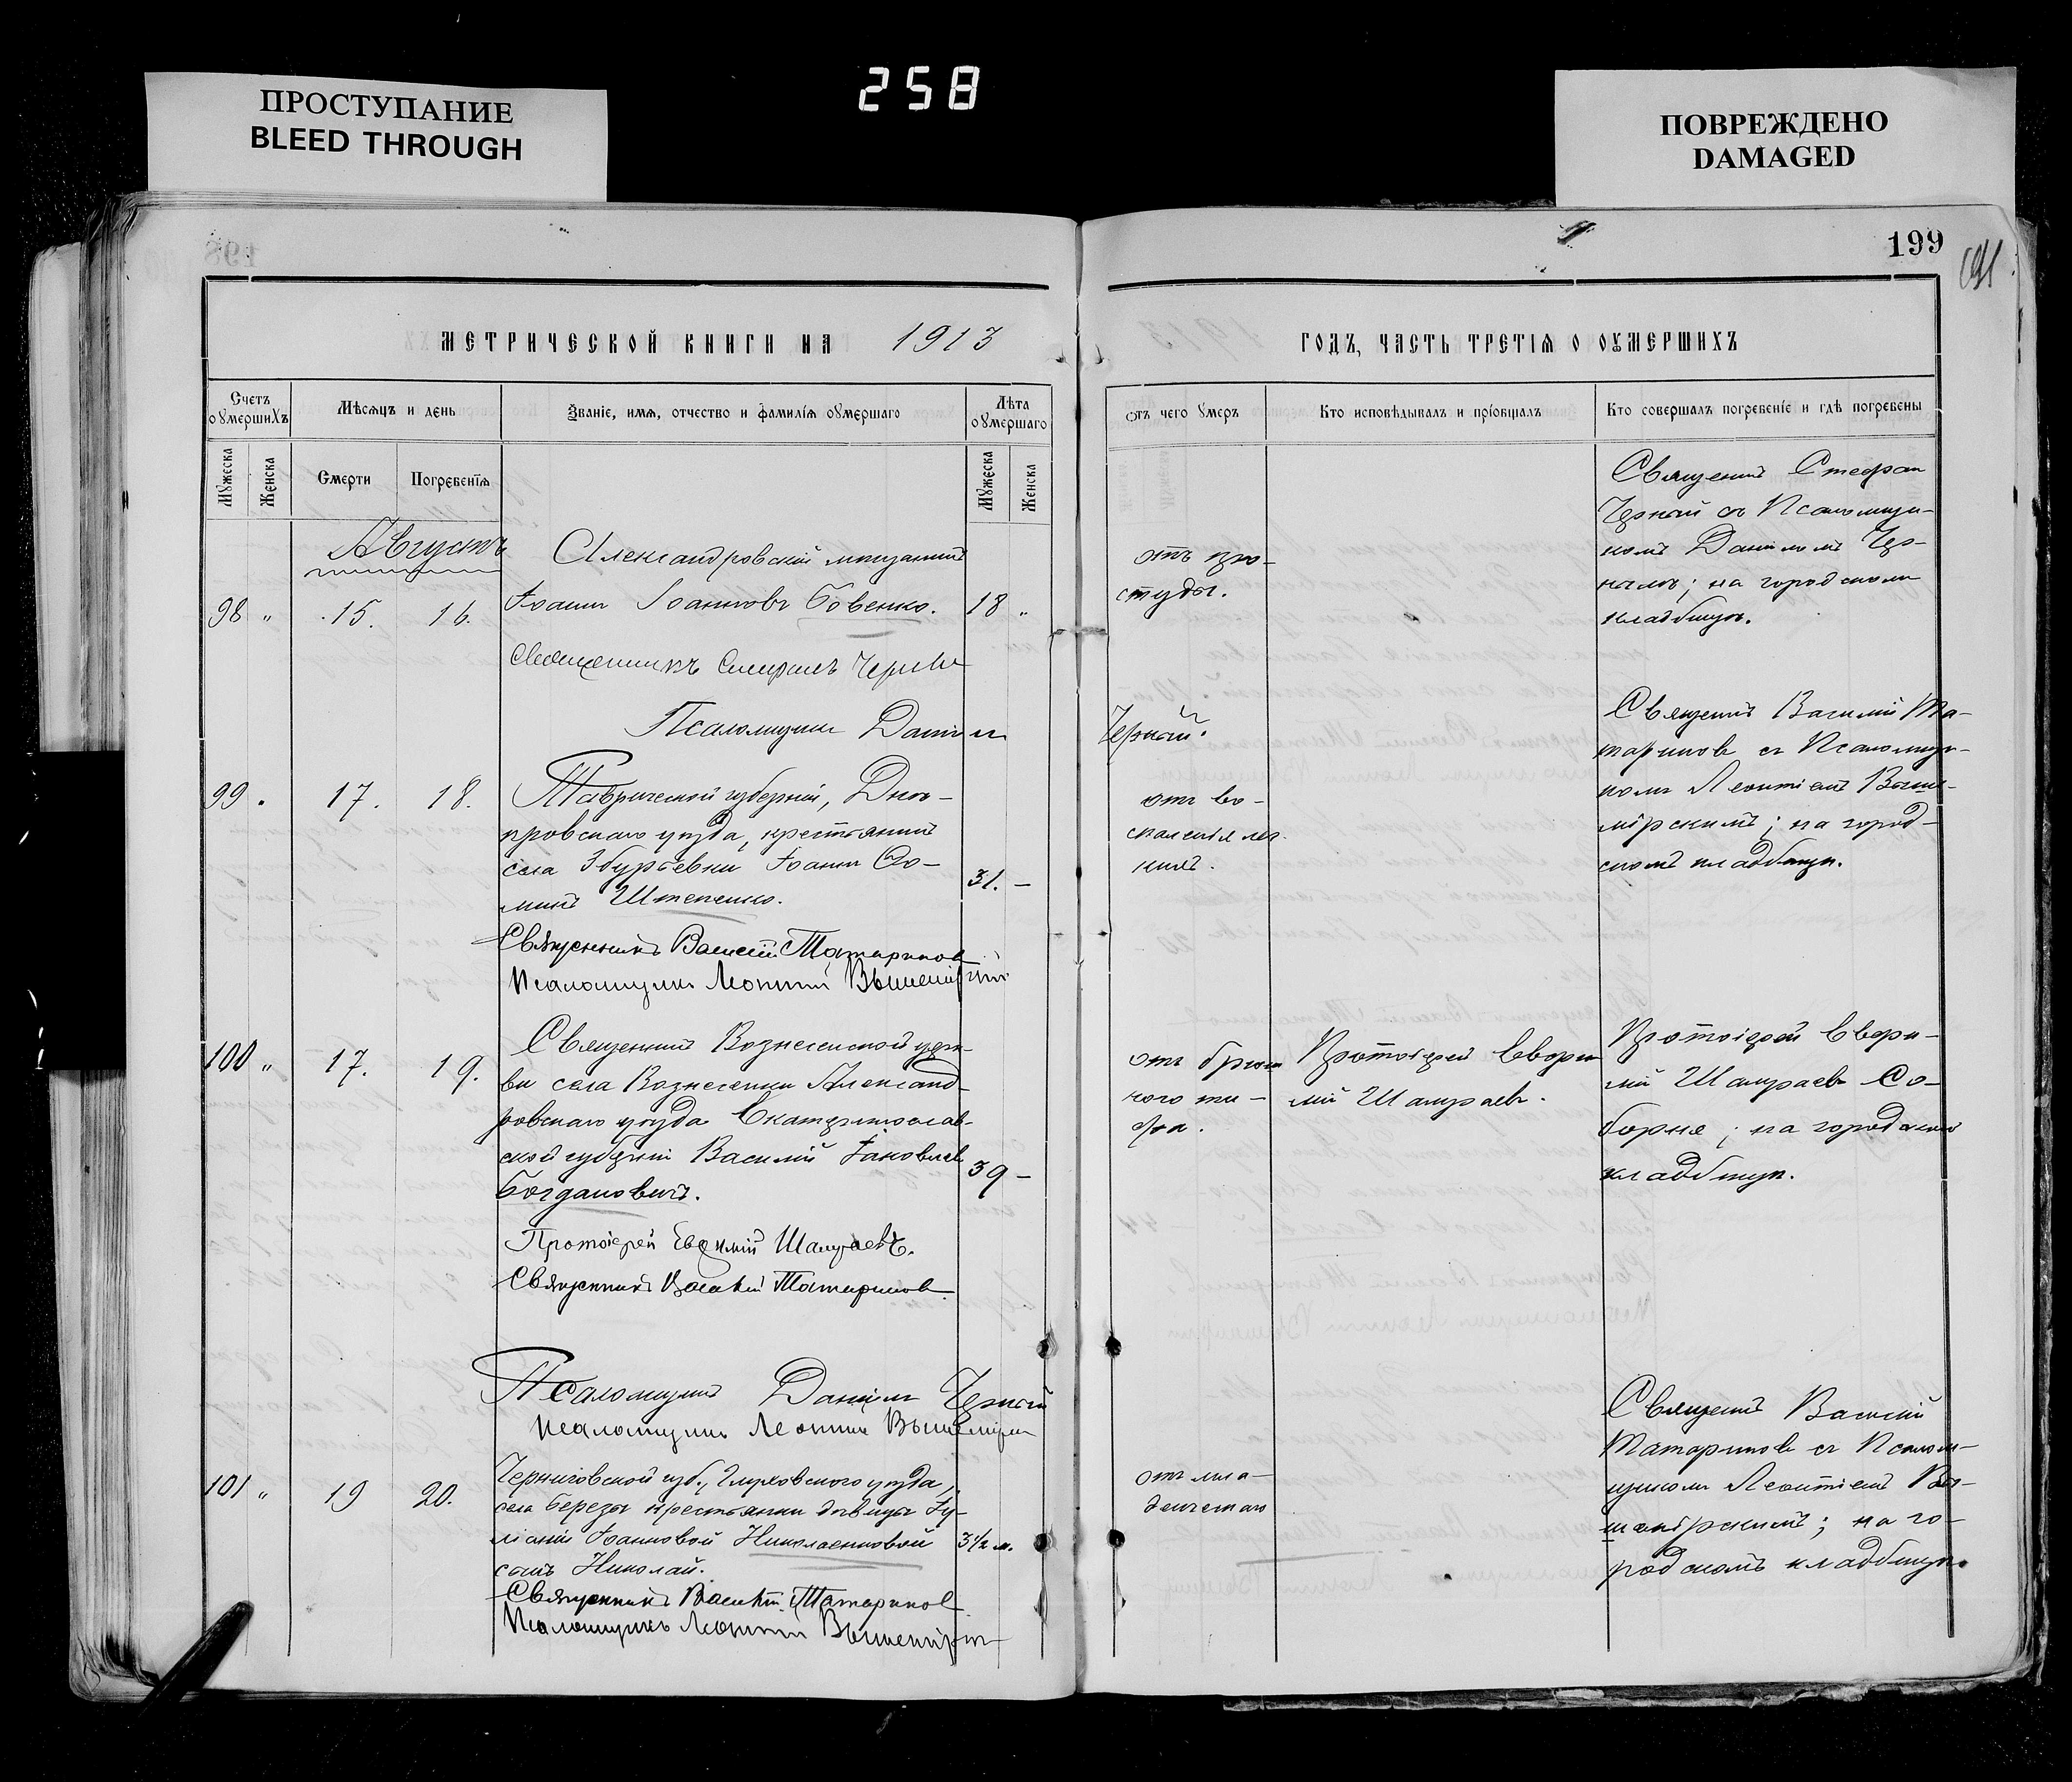 ПРОСТУПАНИЕ
BLEED THROUGH
258
ПОВРЕЖДЕНО
DAMAGED
199
МЕТРИЧЕСКОЙ КНИГИ НА 1913
ГОДЪ, ЧАСТЬ ТРЕТІЯ О ОУМЕРШИХЪ
Счетъ оумершихъ
Мѣсяцъ и день
Званіе, имя, отчество и фамилія оумершаго
Лѣта оумершаго
Мужеска
Женска
Смерти
Погребенія
Мужеска
Женска
отъ чего умеръ
Кто исповѣдывалъ и пріобщалъ
Кто совершалъ погребеніе и гдѣ погребены
Августъ
98 " 15. 16.
Александровскій мѣщанинъ
Іоаннъ Іоанновъ Бовенко. 18 "
Священникъ Стефанъ Черный
Псаломщикъ Даніилъ Черный.
отъ про-
студы.
Священникъ Стефан
Черный съ Псаломщи-
комъ Даніиломъ Чер-
нымъ; на городскомъ
кладбищѣ.
99 " 17. 18.
Таврической губерніи, Днѣ-
провскаго уѣзда, крестьянинъ
села Збурьевки Іоаннъ Ѳо-
минъ Штепенко. 31. –
Священникъ Василій Татариновъ
Псаломщикъ Леонтій Вышемірскій
отъ во-
спаленія лег-
кихъ.
Священникъ Василій Та-
тариновъ съ Псаломщи-
комъ Леонтіемъ Выше-
мірскимъ; на город-
скомъ кладбищѣ.
100 " 17. 19.
Священникъ Вознесенской церк-
ви села Вознесенки Александ-
ровскаго уѣзда Екатеринослав-
ской губерніи Василій Іаковлев
Богдановичъ. 39 –
Протоіерей Евѳимій Шамраевъ.
Священникъ Василій Татариновъ.
Псаломщикъ Даніилъ Черный
Псаломщикъ Леонтій Вышемірскій
отъ брюш
ного ти-
фа.
Протоіерей Евѳи
мій Шамраевъ.
Протоіерей Евѳи-
мій Шамраевъ Со-
борне; на городскомъ
кладбищѣ.
101 " 19 20.
Черниговской губ., Глуховского уѣзда,
села Березы крестьянки дѣвицы Іу-
ліаніи Іоанновой Николаенковой 3½ м.
сынъ Николай.
Священникъ Василій Татариновъ
Псаломщикъ Леонтій Вышемірскій
отъ мла-
денческаго
Священникъ Василій
Татариновъ съ Псалом-
щикомъ Леонтіемъ Вы-
шемірскимъ; на го-
родскомъ кладбищѣ.